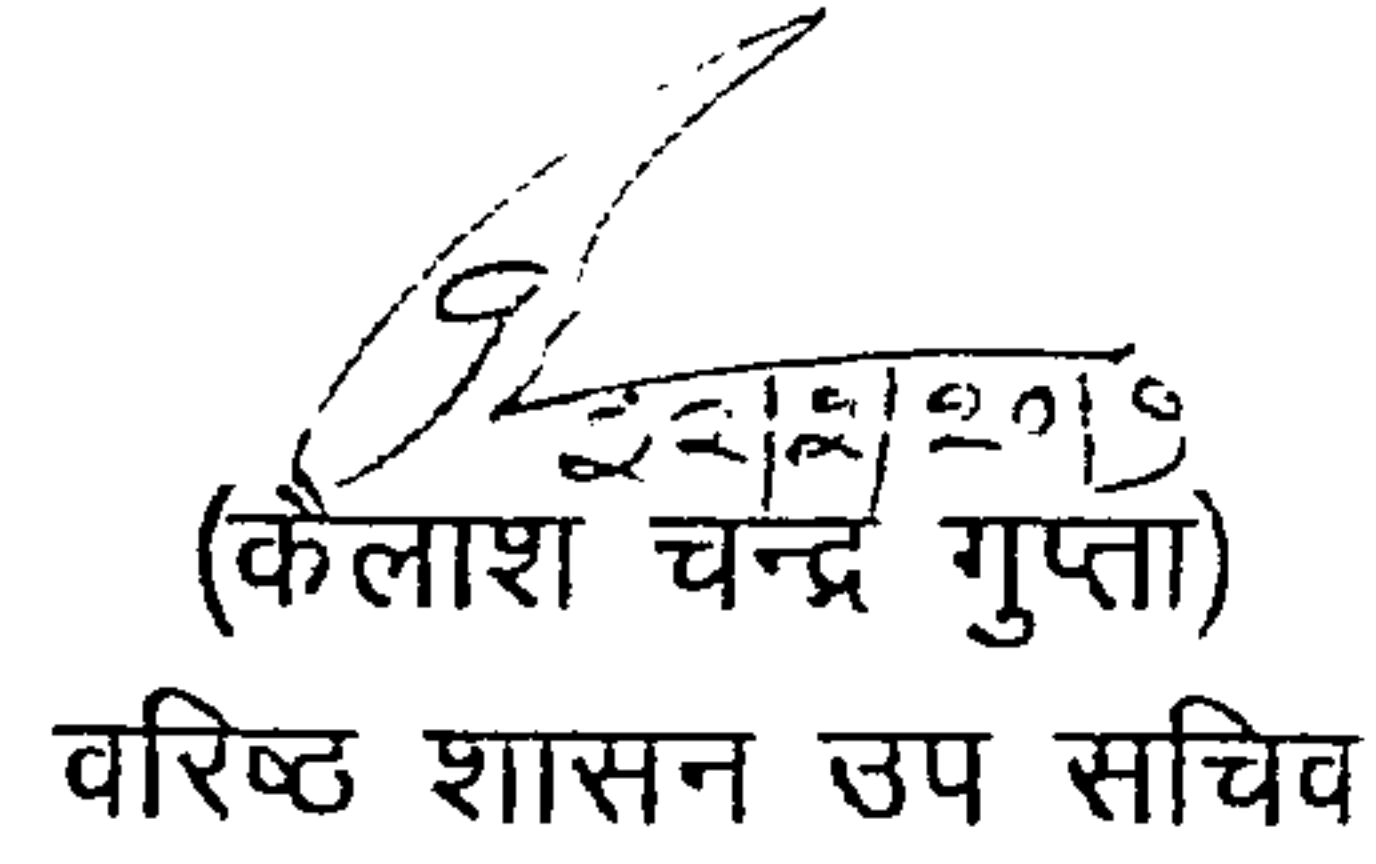 (कैलाश चन्द्र गुप्ता)
वरिष्ठ शासन उप सचिव